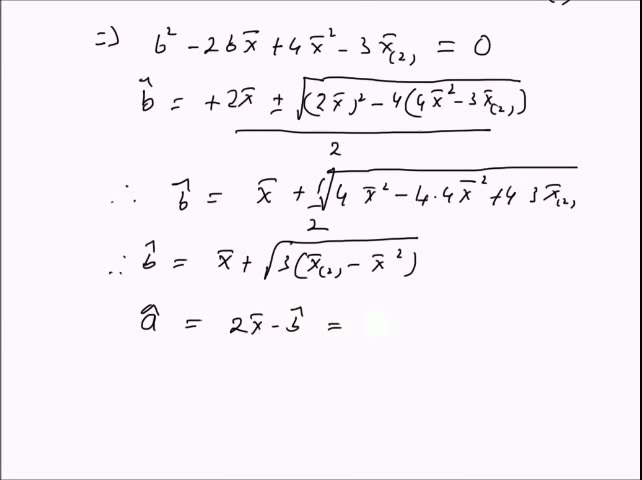 ⇒ b² - 2bx̄ + 4x̄² - 3x̄₍₂₎ = 0
b̂ = +2x̄ ± √((2x̄)² - 4(4x̄² - 3x̄₍₂₎)) / 2
∴ b̂ = x̄ + ½√(4x̄² - 4·4x̄² + 4 3x̄₍₂₎
∴ b̂ = x̄ + √(3(x̄₍₂₎ - x̄²))
â = 2x̄ - b̂ =